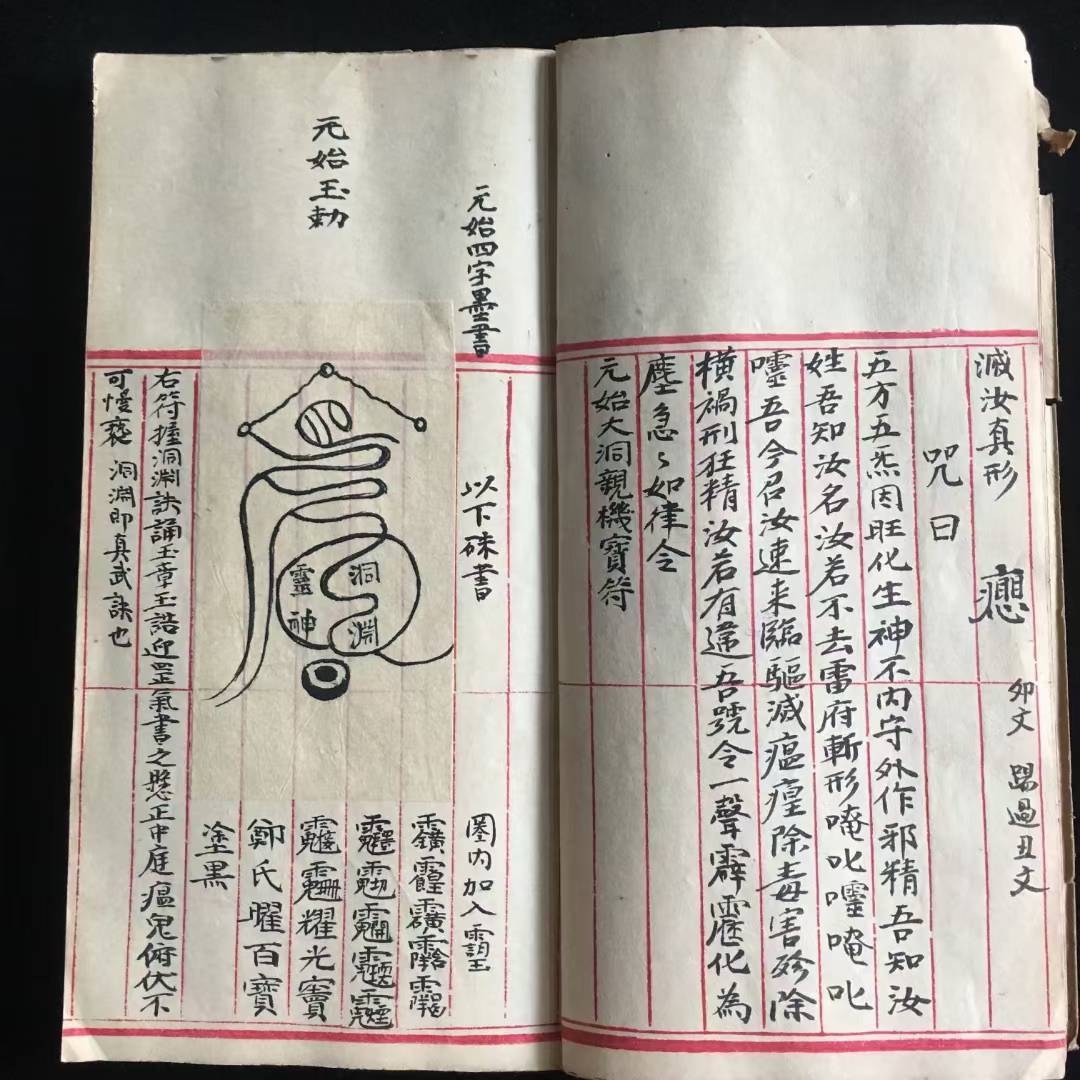 滅汝真形
卯文 踢過丑文
咒曰
五方五炁因旺化生神不内守外作邪精吾知汝
姓吾知汝名汝若不去雷府斬形唵叱嚏唵叱
嚏吾今召汝速来臨驅滅瘟㾮除毒害殄除
横禍刑狂精汝若有違吾號令一聲霹靂化為
塵急〻如律令
元始大洞親機寳符
元始四字墨書
以下硃書
圏内加入
元始玉勅
洞淵
靈神
耀光竇
鄭氏曜百寳
塗黒
右符握洞淵訣誦玉章玉誥迎罡氣書之懸正中庭瘟鬼俯伏不
可慢褻 洞淵即真武訣也